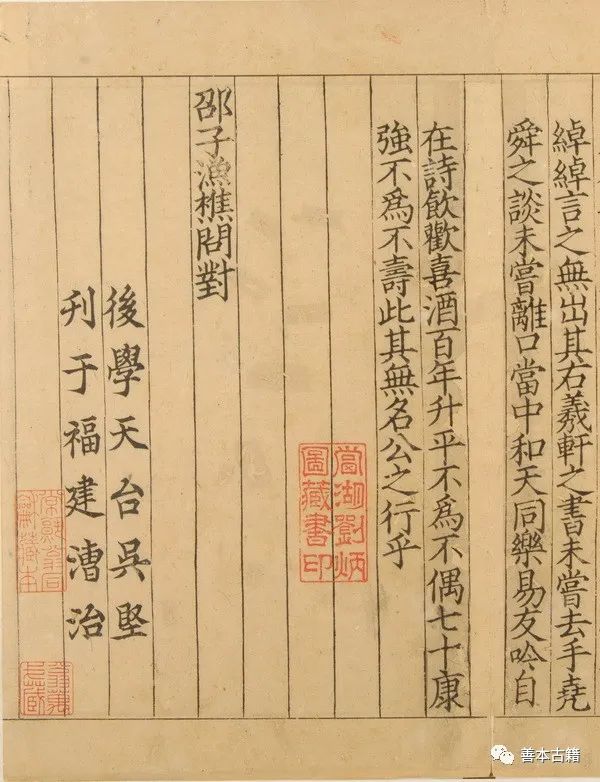 綽綽言之無出其右羲軒之書未嘗去手堯
舜之談未嘗離口當中和天同樂易友吟自
在詩飲歡喜酒百年升平不為不偶七十康
強不為不壽此其無名公之行乎
當湖劉炳
圖藏書印
邵子漁樵問對
後學天台吳堅
刋于福建漕治
善本古籍